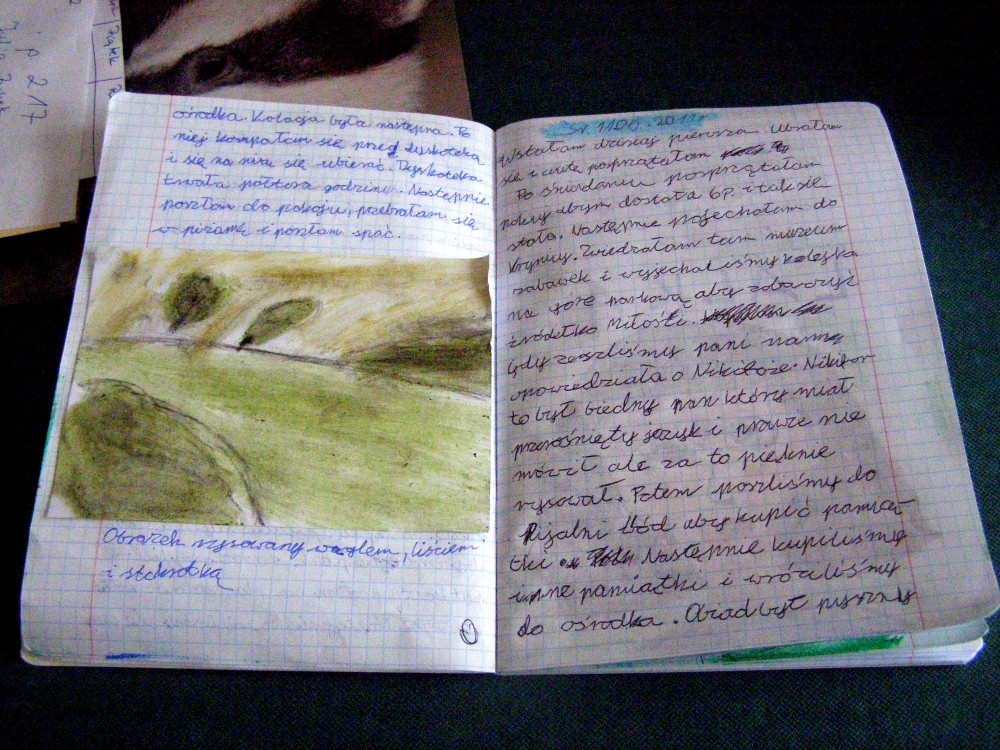 ip 217
ośrodka. Kolacja była następna. Po
niej kompałam się przed dyskoteką
i się na nią się ubierać. Dyskoteka
trwała półtora godziny. Następnie
poszłam do pokoju, przebrałam się
w piżamę i poszłam spać.
Obrazek rysowany węglem, liściem
i stokrotką
Śr. 1106. 2011r
Wstałam dzisiaj pierwsza. Ubrałam
się i cicho posprzątałam
Po śniadaniu posprzątałam
pokój abym dostała 6p. i tak się
stało. Następnie pojechałam do
Krynicy. Zwiedzałam tam muzeum
zabawek i wyjechaliśmy kolejką
na górę parkową aby zobaczyć
źródełko Miłości.
gdy zeszliśmy pani nam
opowiedziała o Nikiforze. Nikifor
to był biedny pan który miał
przerośnięty język i prawie nie
mówił ale za to pięknie
rysował. Potem poszliśmy do
Pijalni Wód aby kupić pamią-
tki Następnie kupiliśmy
inne pamiątki i wróciliśmy
do ośrodka. Obiad był pyszny